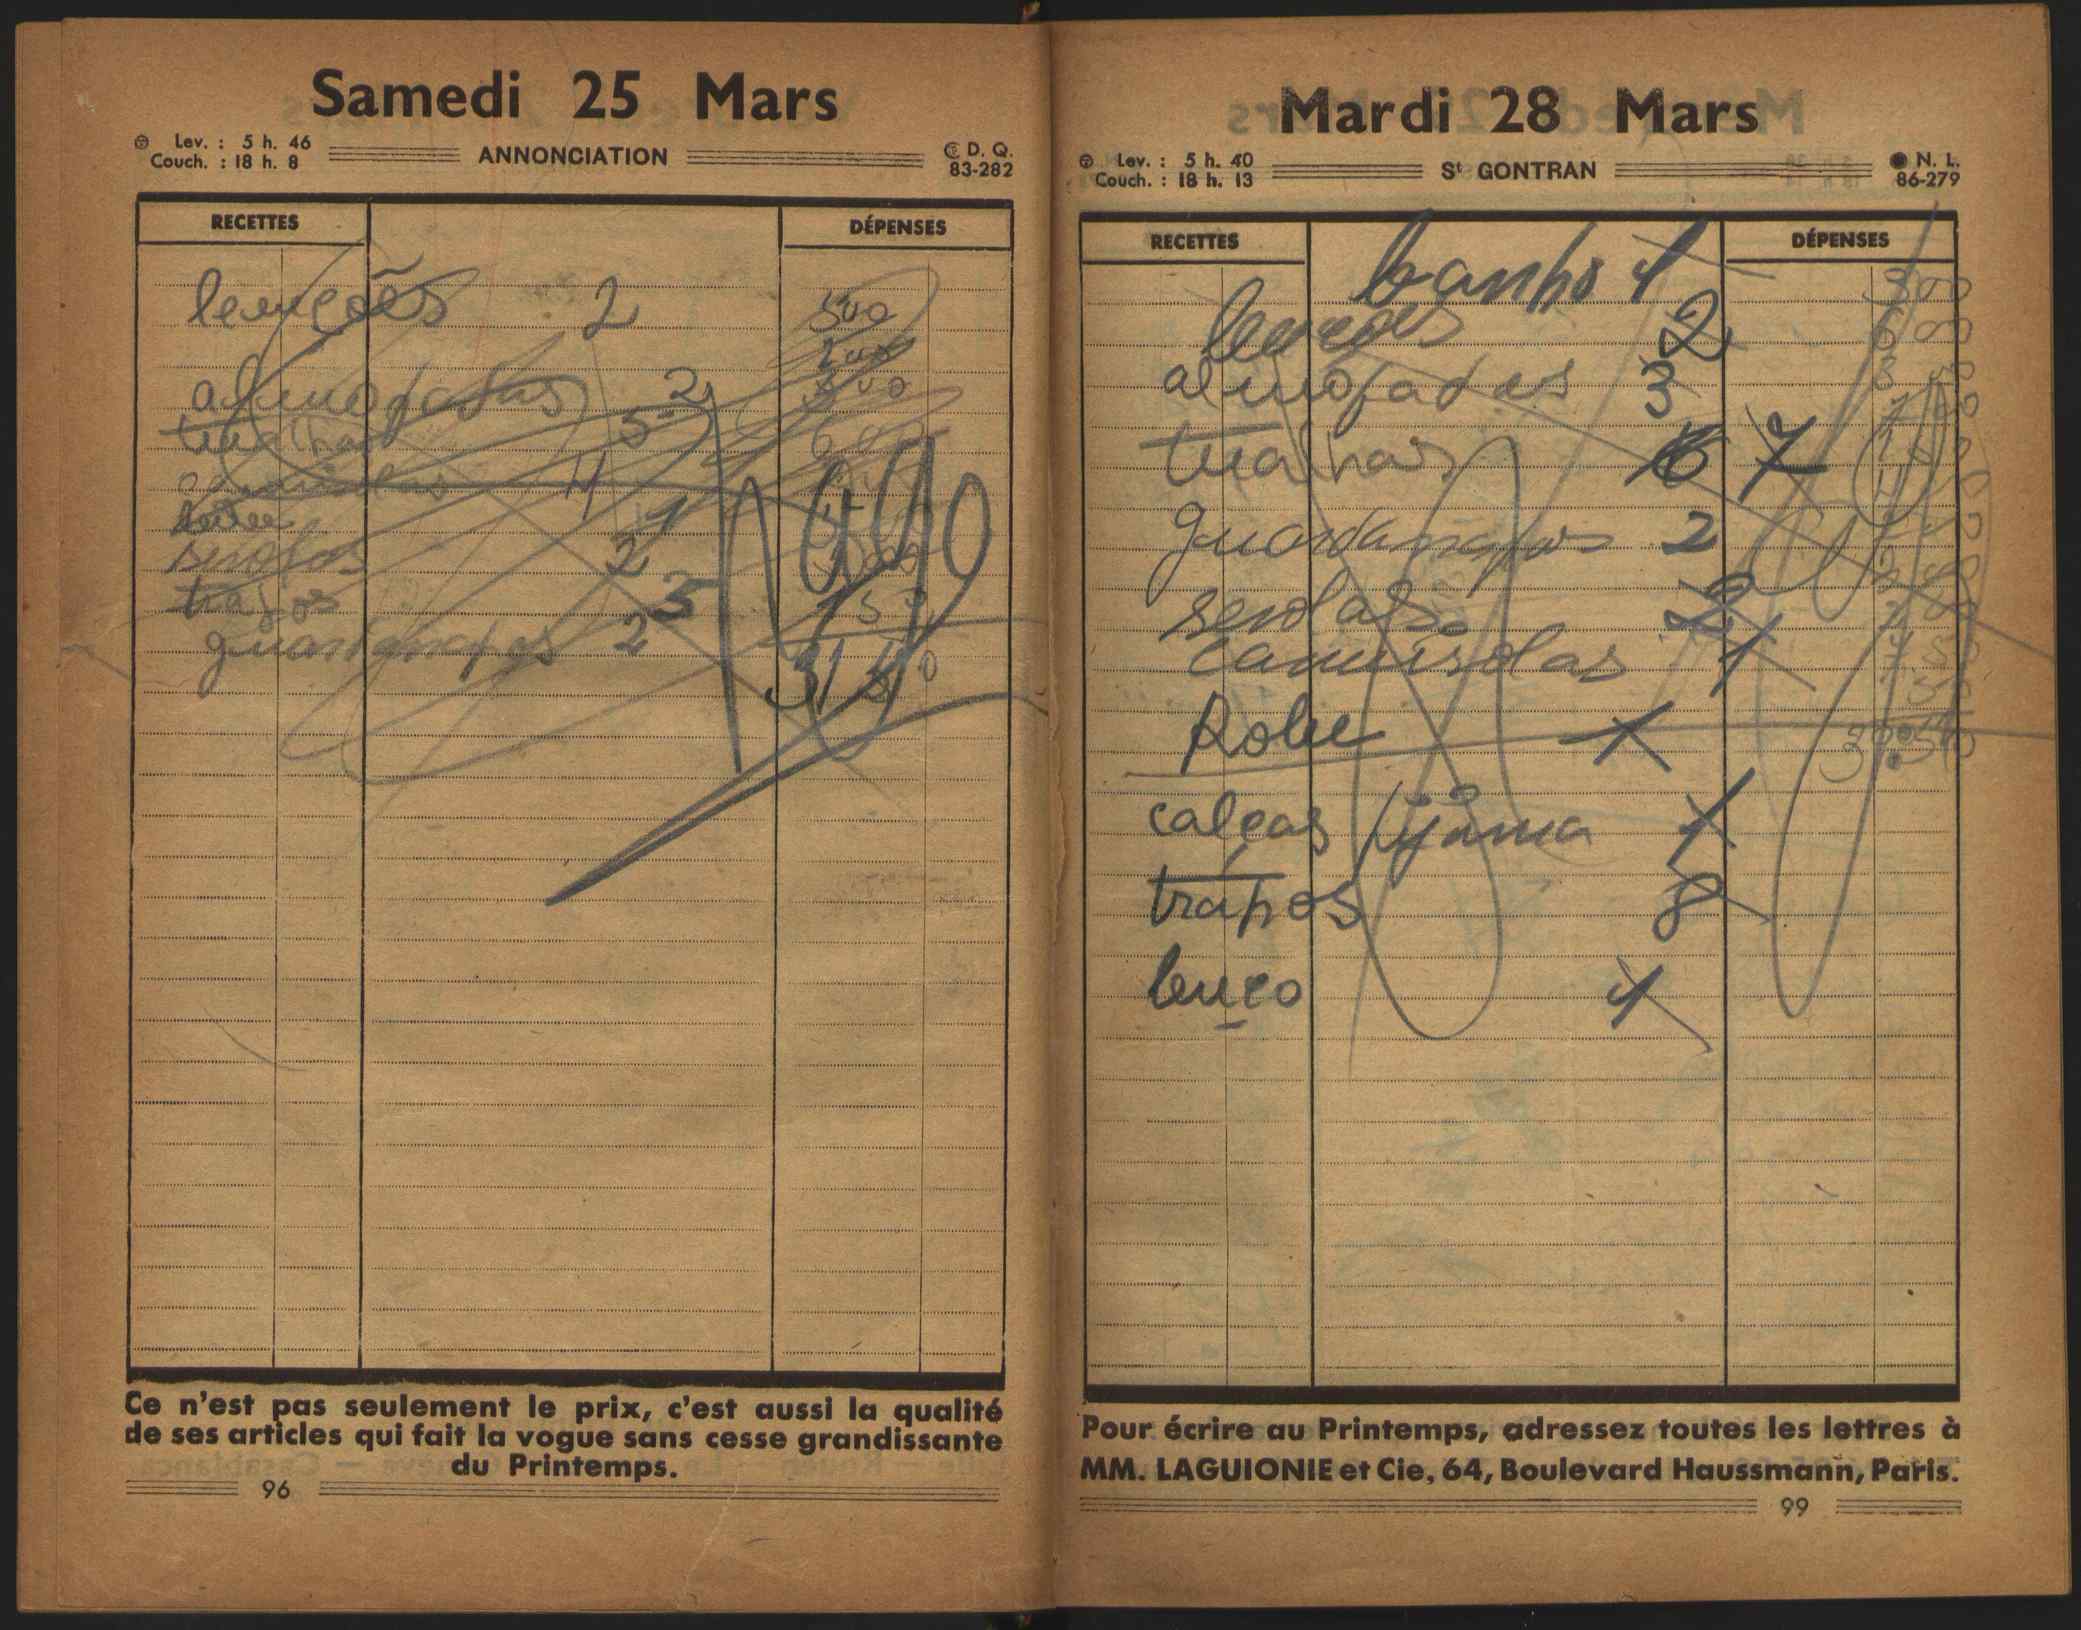 Samedi 25 Mars
Lev. : 5 h. 46
Couch. : 18 h. 8
ANNONCIATION
D. Q.
83-282
RECETTES
DÉPENSES
lençóes 2 500
almofadas 2
toalhas 5
camisolas 4
1
serolas 2
trapos 3
guardanapos 2
Ce n'est pas seulement le prix, c'est aussi la qualité
de ses articles qui fait la vogue sans cesse grandissante
du Printemps.
96
Mardi 28 Mars
Lev. : 5 h. 40
Couch. : 18 h. 13
St GONTRAN
N. L.
86-279
RECETTES
DÉPENSES
banho 1
lençoes 2
almofadas 3
toalhas 6 7
guardanapos 2
serolas 2
camisolas 1
Robe 1
calças pijama 1
trapos 8
lenço 1
Pour écrire au Printemps, adressez toutes les lettres à
MM. LAGUIONIE et Cie, 64, Boulevard Haussmann, Paris.
99